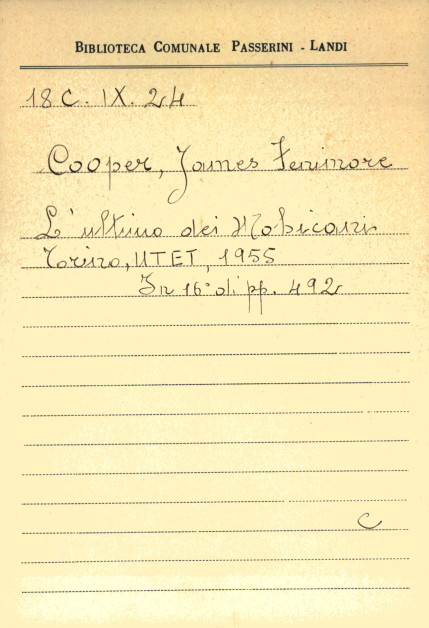 BIBLIOTECA COMUNALE PASSERINI - LANDI
18 C. IX. 24
Cooper, James Fenimore
L'ultimo dei Mohicani
Torino, UTET, 1955
In 16° di pp. 492
C